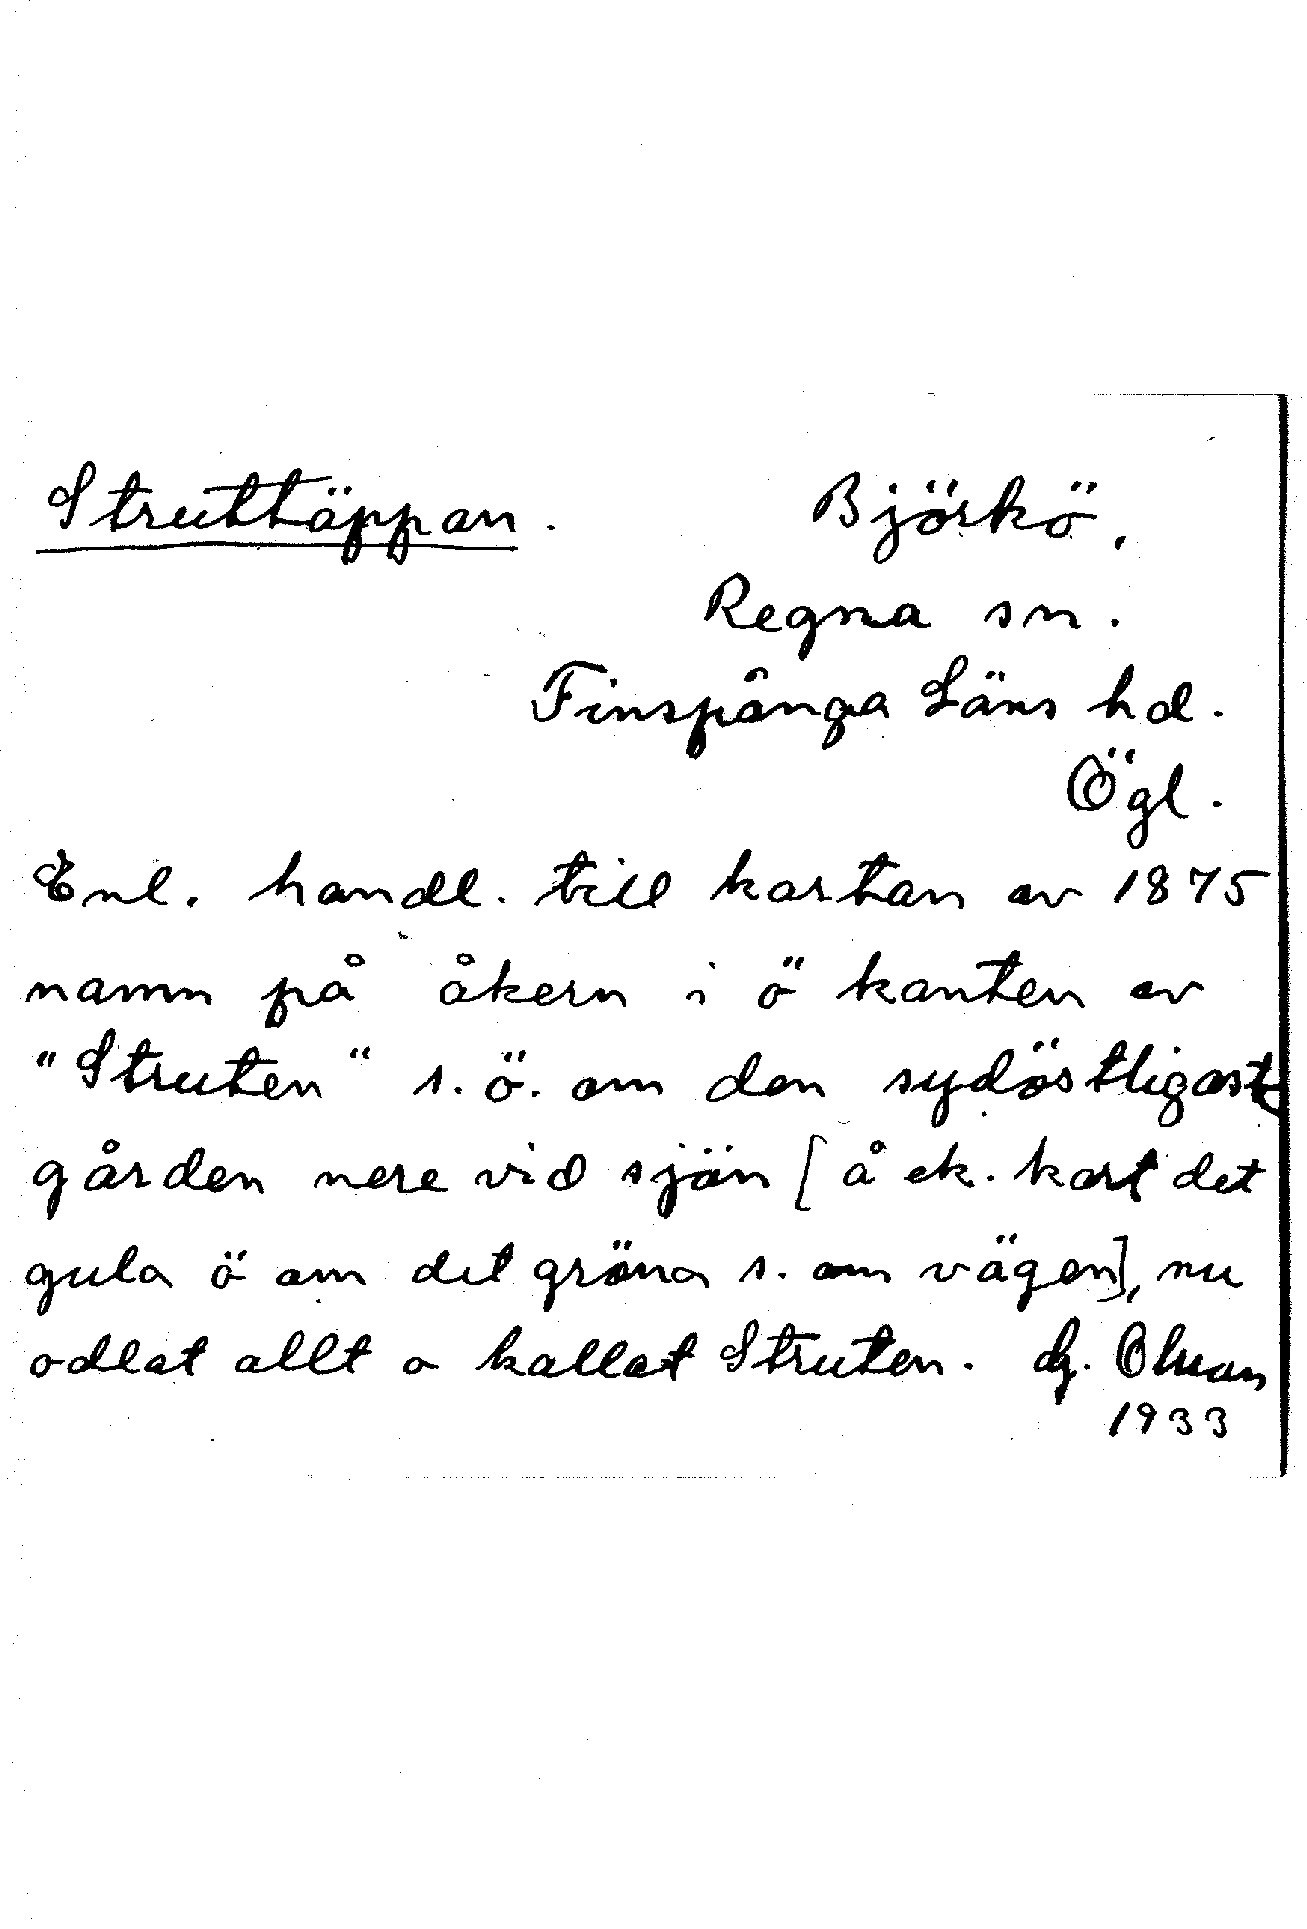 Struttäppan. Björkö,
Regna sn.
Finspånga Läns hd.
Ögl.
Enl. handl. till kartan av 1875
namn på åkern i ö kanten av
"Struten" s.ö. om den sydöstligast
gården nere vid sjön [å ek. kart det
gula ö om det gröna s. om vägen], nu
odlat allt o kallat Struten.
1933